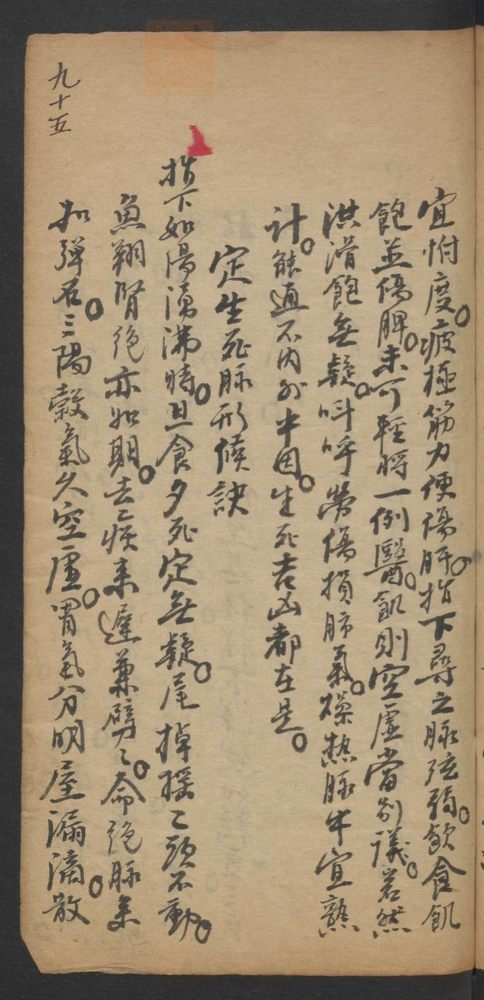 宜忖度。疲極筋力便傷肝。指下尋之脉弦弱。飲食飢
飽並傷脾。未可輕將一例醫。飢則空虛當別議。若然
洪滑飽無疑。叫呼勞傷損肺氣。燥熱脉中宜熟
計。能通不内外中因。生死吉凶都在是。
定生死脉形候訣
指下如湯湧沸時。旦食夕死定無疑。尾掉搖〻頭不動。
魚翔腎絶亦如期。去疾來遲兼劈〻。命絶脉來
如彈石。三陽穀氣久空虛。胃氣分明屋漏滴。散
九十五